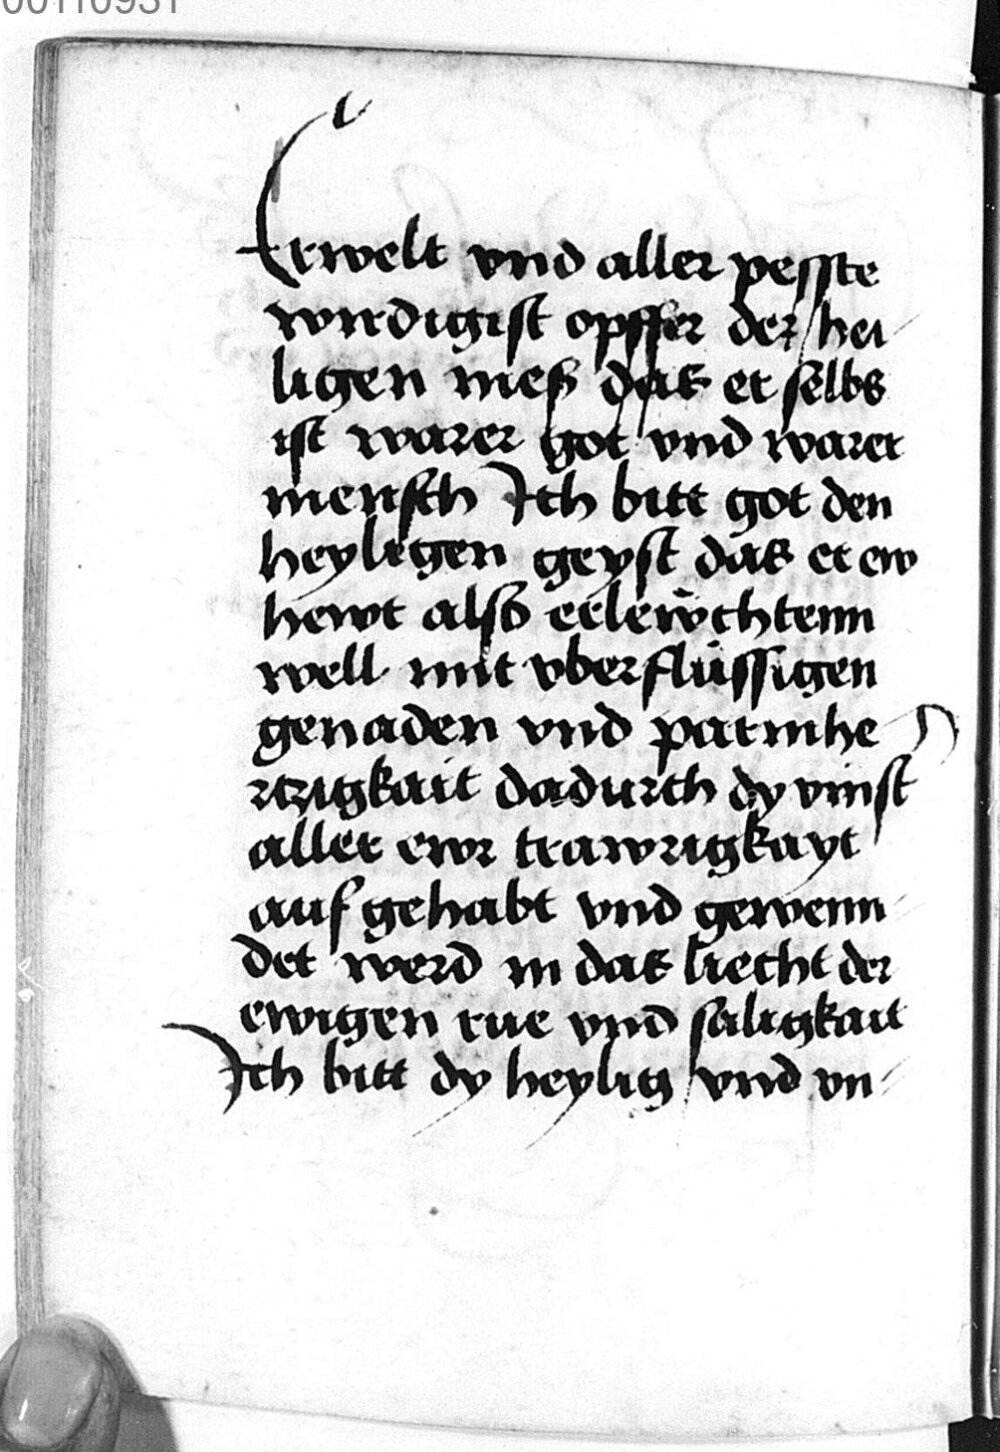 00110931
Erwelt vnd aller pesste
wirdigist opffer der hei
ligen meß das er selbs
ist warer got vnd warer
mensch Ich bitt got den
heyligen geyst das er ew
hewt alſo erlewchtenn
well mit vberflüssigen
genaden vnd parmhe
rczigkait dadurch dy vinst
aller ewr trawrigkayt
auf gehabt vnd gewenn
det werd in das liecht der
ewigen rue vnd säligkait
Ich bitt dy heylig vnd vn